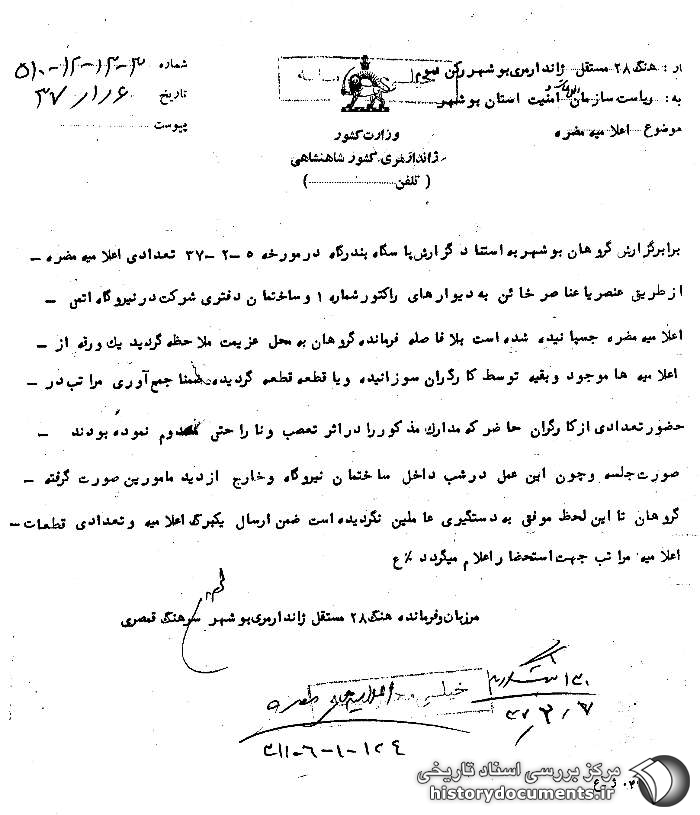 از : هنگ ۲۸ مستقل ژاندارمری بوشهر رکن سوم
به : ریاست سازمان اطلاعات و امنیت استان بوشهر
موضوع : اعلامیه مضره
وزارت کشور
ژاندارمری کشور شاهنشاهی
( تلفن ............ )
شماره ۳-۱۳-۱۲-۵۱۰
تاریخ
پیوست
برابر گزارش گروهان بوشهر به استناد گزارش پاسگاه بندرگاه در مورخه ۵-۲-۳۷ تعدادی اعلامیه مضره -
از طریق عنصر یا عناصر خائن به دیوارهای راکتور شماره ۱ و ساختمان دفتری شرکت در نیروگاه اتمی -
اعلامیه مضره چسبانیده شده است بلافاصله فرمانده گروهان به محل عزیمت ملاحظه گردید یک ورقه از -
اعلامیه ها موجود و بقیه توسط کارگران سوزانیده و یا قطعه قطعه گردیده ضمنا جمع آوری مراتب در -
حضور تعدادی از کارگران حاضر که مدارک مذکور را در اثر تعصب و ناراحتی معدوم نموده بودند -
صورت جلسه و چون این عمل در شب داخل ساختمان نیروگاه و خارج از دید مامورین صورت گرفته -
گروهان تا این لحظ موفق به دستگیری عاملین نگردیده است ضمن ارسال یکبرگ اعلامیه و تعدادی قطعات -
اعلامیه مراتب جهت استحضار اعلام میگردد %ع
مرزبان و فرمانده هنگ ۲۸ مستقل ژاندارمری بوشهر سرهنگ قمصری
اعلامیه های مضره
۳۷/۳/۷
مرکز بررسی اسناد تاریخی
historydocuments.ir